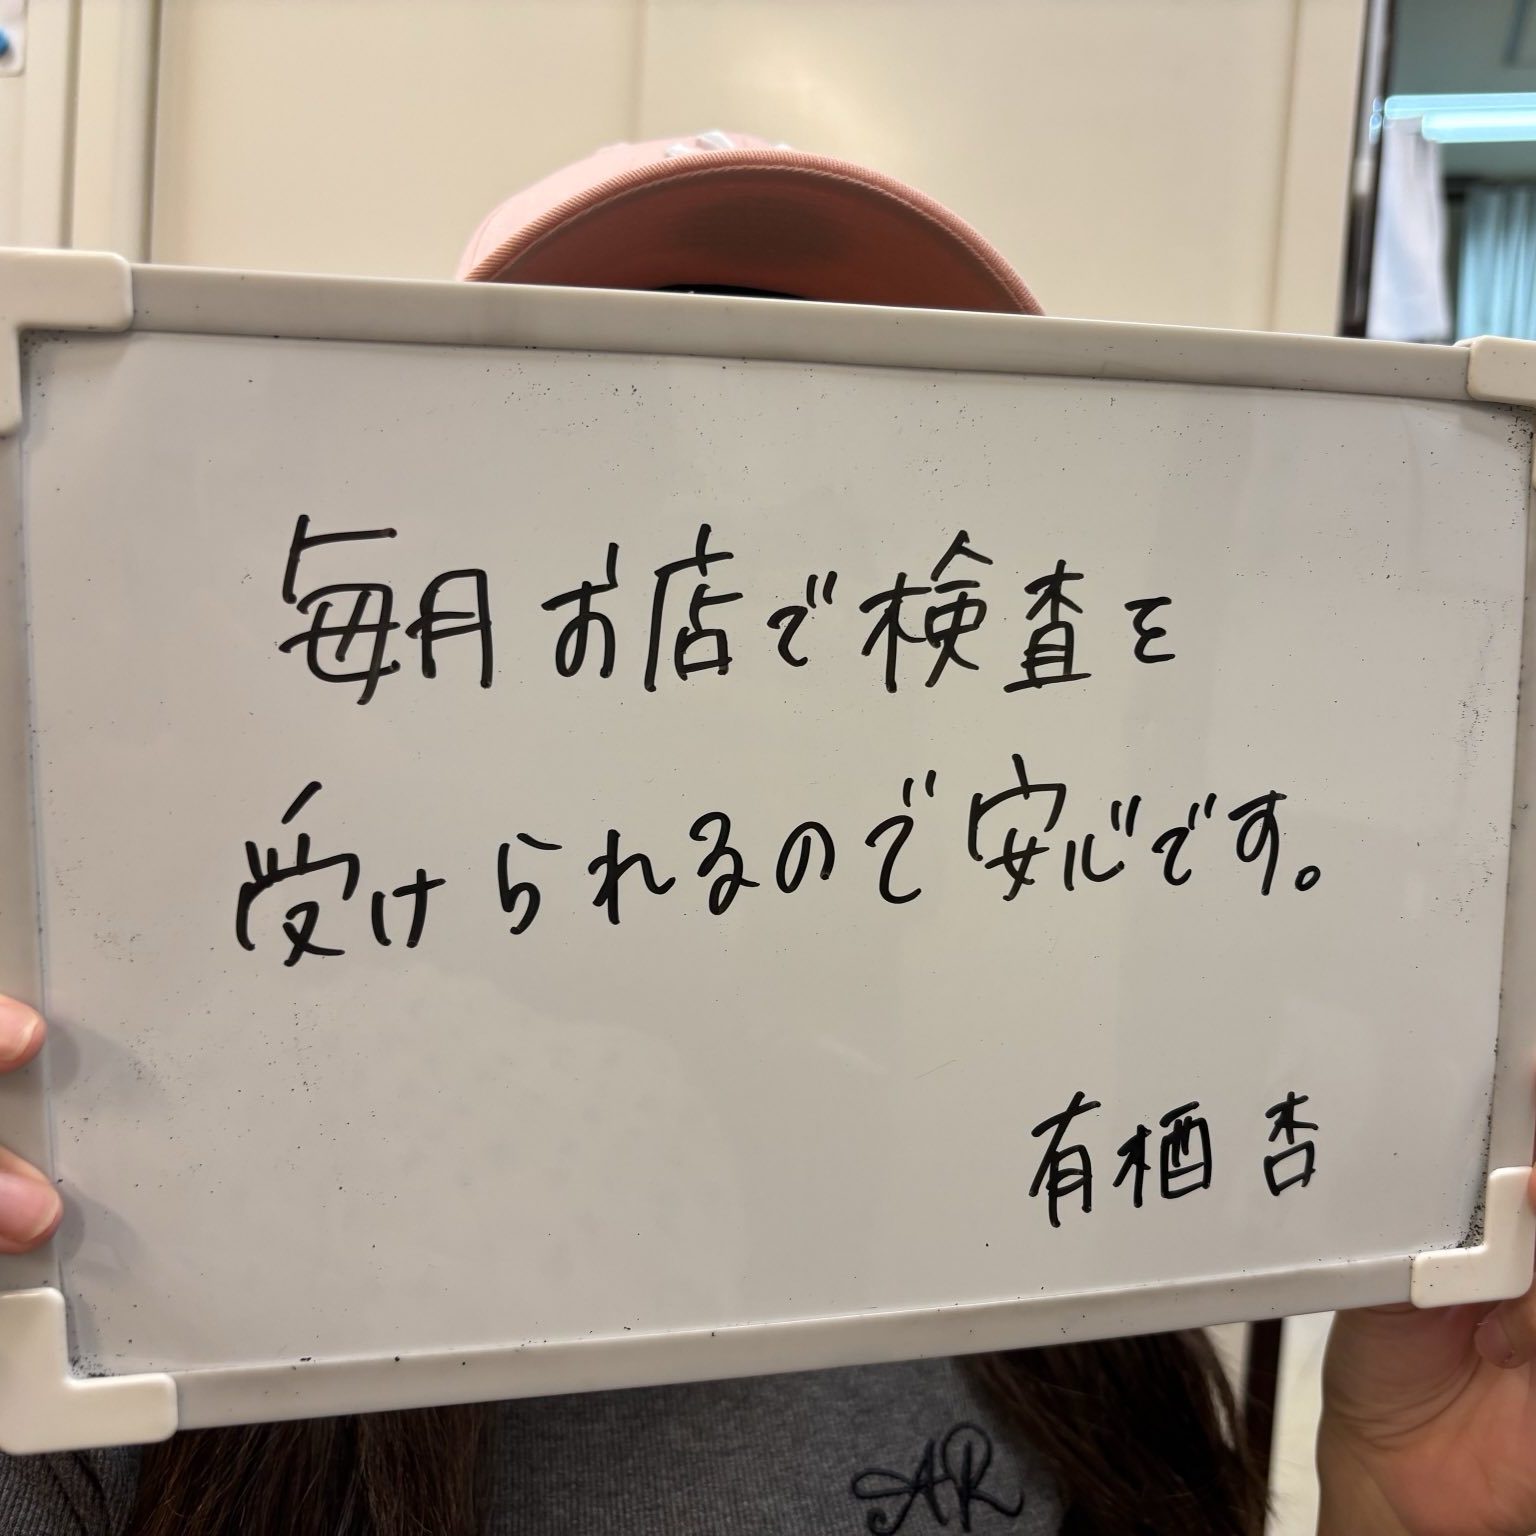 毎月お店で検査を
受けられるので安心です。
有栖 杏
AR